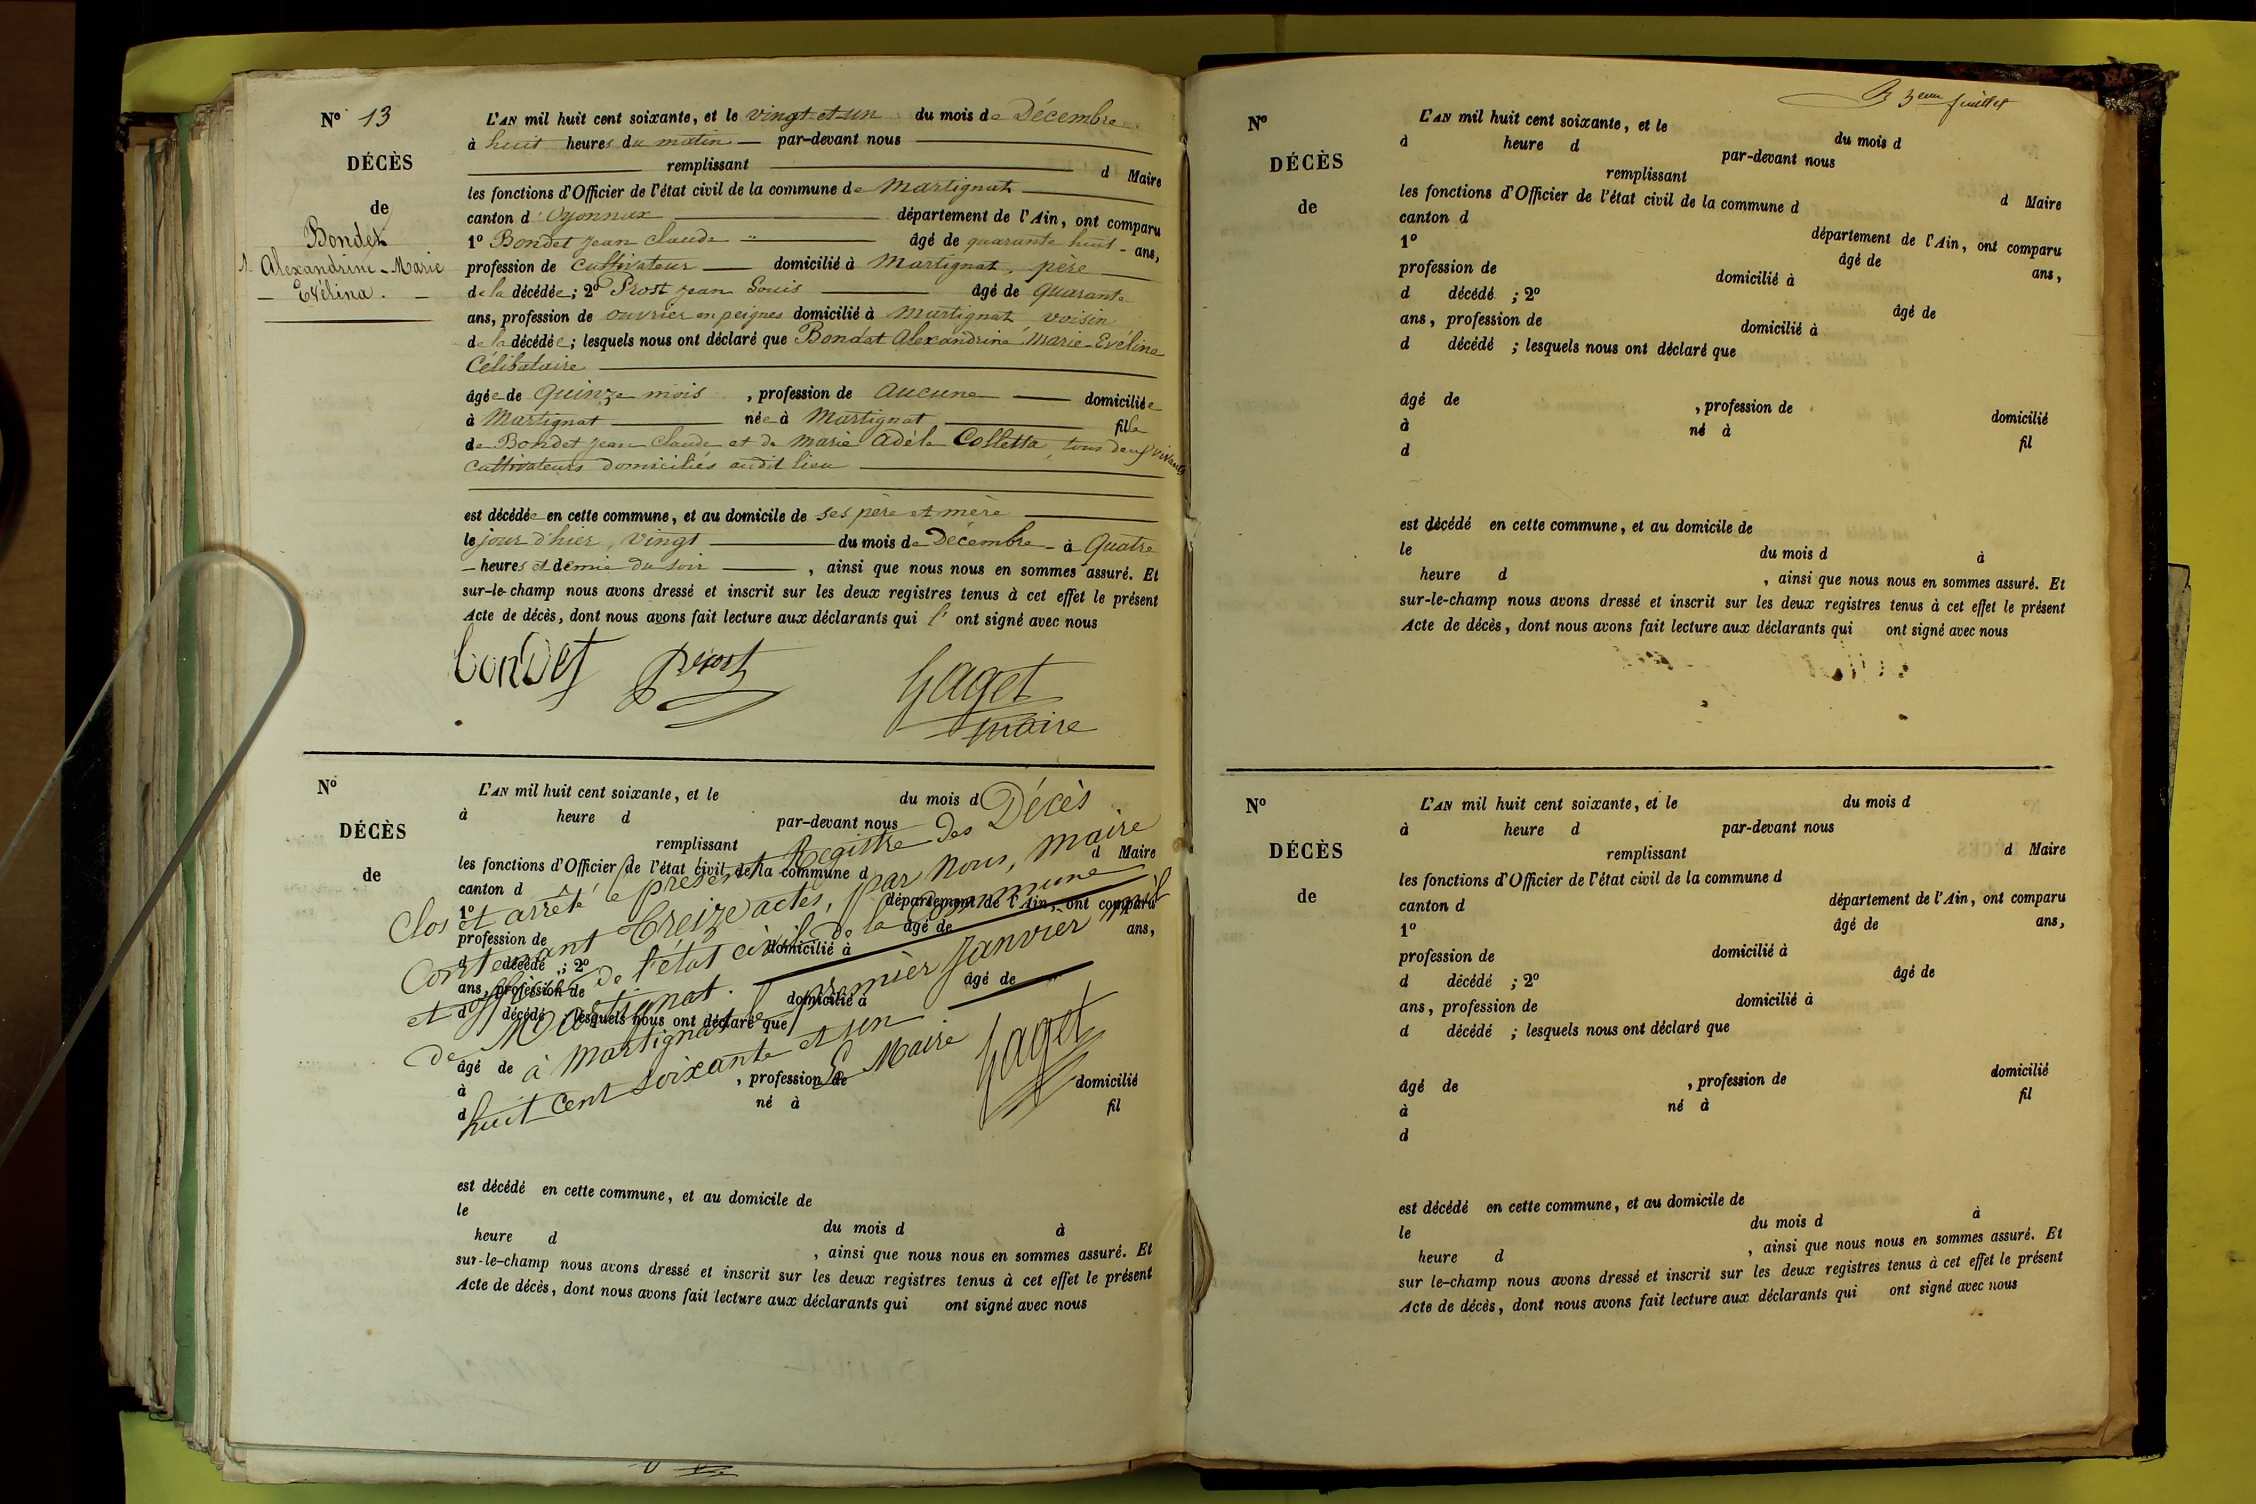 N° 13
DÉCÈS
de
Bondet
Alexandrine - Marie
Evélina.
L'AN mil huit cent soixante, et le vingt et un du mois de Décembre
à huit heures du matin par-devant nous
remplissant d Maire
les fonctions d'Officier de l'état civil de la commune de Martignat
canton d'Oyonnax département de l'Ain, ont comparu
1° Bondet Jean Claude âgé de quarante huit ans,
profession de cultivateur domicilié à Martignat, père
de la décédée; 2° Prost Jean Louis âgé de quarante
ans, profession de ouvrier en peignes domicilié à Martignat voisin
de la décédée; lesquels nous ont déclaré que Bondet Alexandrine Marie-Evéline
Célibataire
âgée de Quinze mois, profession de aucune domiciliée
à Martignat née à Martignat fille
de Bondet Jean Claude et de Marie Adèle Colletta, tous deux vivants
cultivateurs domiciliés audit lieu
est décédée en cette commune, et au domicile de ses père et mère
le jour d'hier, vingt du mois de Décembre à Quatre
heures et demie du soir, ainsi que nous nous en sommes assuré. Et
sur-le-champ nous avons dressé et inscrit sur les deux registres tenus à cet effet le présent
Acte de décès, dont nous avons fait lecture aux déclarants qui l' ont signé avec nous
bondet Prost Gaget
maire
N°
DÉCÈS
de
L'AN mil huit cent soixante, et le du mois d
à heure d par-devant nous
remplissant d Maire
les fonctions d'Officier de l'état civil de la commune d
canton d département de l'Ain, ont comparu
1° âgé de ans,
profession de domicilié à
d décédé ; 2° âgé de
ans, profession de domicilié à
d décédé ; lesquels nous ont déclaré que
âgé de , profession de domicilié
à né à fil
d
Clos et arrêté le présent Registre des Décès
Contenant Treize actes, par nous, maire
et officier de l'état civil de la Commune
de Martignat.
à Martignat le premier Janvier mil
huit cent soixante et un
Le Maire Gaget
est décédé en cette commune, et au domicile de
le du mois d à
heure d , ainsi que nous nous en sommes assuré. Et
sur-le-champ nous avons dressé et inscrit sur les deux registres tenus à cet effet le présent
Acte de décès, dont nous avons fait lecture aux déclarants qui ont signé avec nous
3eme feuillet
N°
DÉCÈS
de
L'AN mil huit cent soixante, et le du mois d
à heure d par-devant nous
remplissant d Maire
les fonctions d'Officier de l'état civil de la commune d
canton d département de l'Ain, ont comparu
1° âgé de ans,
profession de domicilié à
d décédé ; 2° âgé de
ans, profession de domicilié à
d décédé ; lesquels nous ont déclaré que
âgé de , profession de domicilié
à né à fil
d
est décédé en cette commune, et au domicile de
le du mois d à
heure d , ainsi que nous nous en sommes assuré. Et
sur-le-champ nous avons dressé et inscrit sur les deux registres tenus à cet effet le présent
Acte de décès, dont nous avons fait lecture aux déclarants qui ont signé avec nous
N°
DÉCÈS
de
L'AN mil huit cent soixante, et le du mois d
à heure d par-devant nous
remplissant d Maire
les fonctions d'Officier de l'état civil de la commune d
canton d département de l'Ain, ont comparu
1° âgé de ans,
profession de domicilié à
d décédé ; 2° âgé de
ans, profession de domicilié à
d décédé ; lesquels nous ont déclaré que
âgé de , profession de domicilié
à né à fil
d
est décédé en cette commune, et au domicile de
le du mois d à
heure d , ainsi que nous nous en sommes assuré. Et
sur le-champ nous avons dressé et inscrit sur les deux registres tenus à cet effet le présent
Acte de décès, dont nous avons fait lecture aux déclarants qui ont signé avec nous